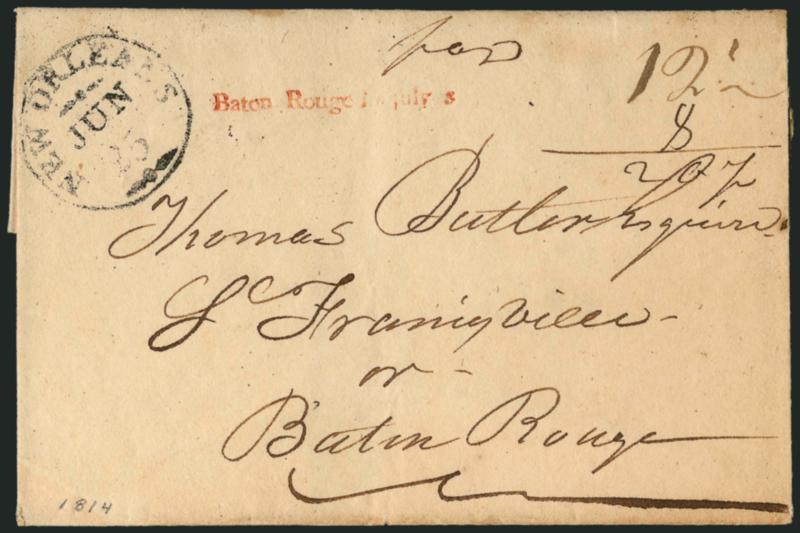 NEW ORLEANS
JUN
Baton Rouge
12
8
Thomas Butler Esquire
St Francisville
or
Baton Rouge
1814